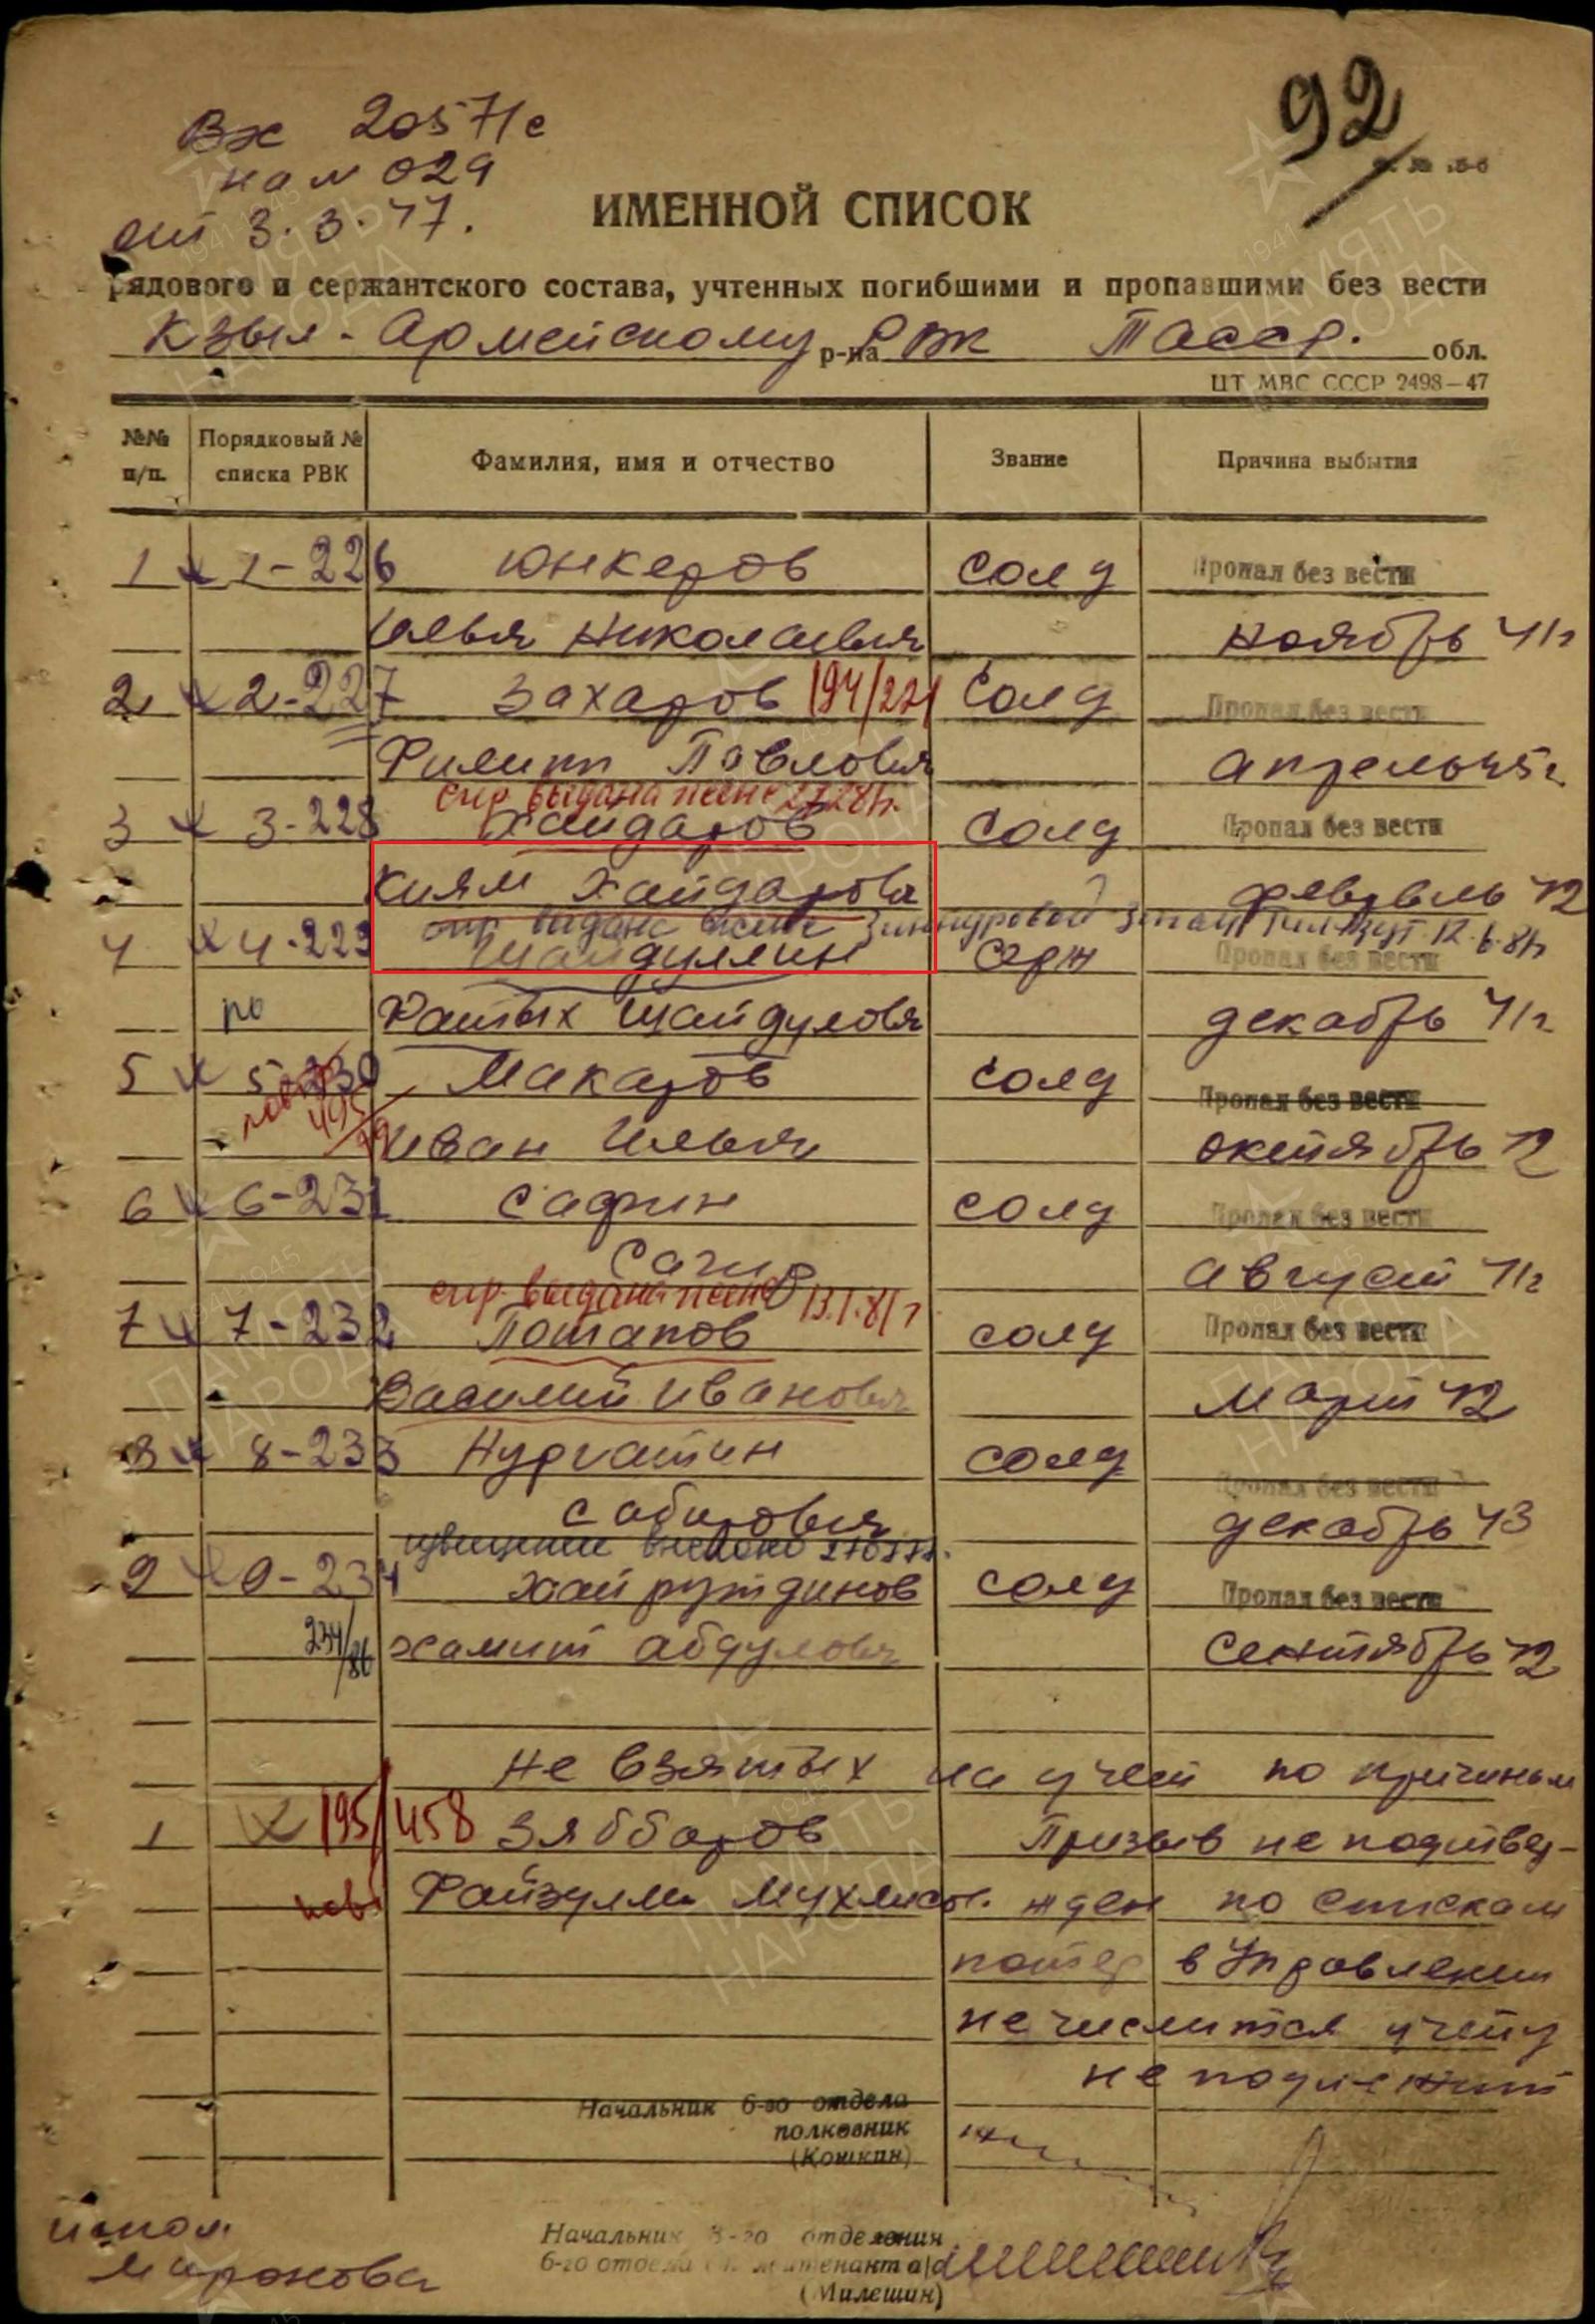 Вх 20571с
на № 029
от 3.3.47.
92
ИМЕННОЙ СПИСОК
рядового и сержантского состава, учтенных погибшими и пропавшими без вести
Кзыл-Армейскому р-на РВК ТАССР. обл.
ЦТ МВС СССР 2498—47
№№ п/п. Порядковый № списка РВК Фамилия, имя и отчество Звание Причина выбытия
1 1-226 Юнкеров солд Пропал без вести
Илья Николаевич ноябрь 41г
2 2-227 Захаров 194/221 солд Пропал без вести
Филипп Павлович апрель 45г
спр. выдана жене
3 3-228 Хайдаров солд Пропал без вести
Киям Хайдарович февраль 42
спр. выдана жене 12.6.81г
4 4-229 Шайдуллин серж Пропал без вести
Фатых Шайдулович декабрь 41г
5 5-230 Макаров солд Пропал без вести
Иван Ильич октябрь 42
6 6-231 Сафин солд Пропал без вести
Сагир август 41г
спр. выдана жене 13.1.81г
7 7-232 Потапов солд Пропал без вести
Василий Иванович март 42
8 8-233 Нургатин солд Пропал без вести
Сабирович декабрь 43
извещение
9 9-234 Хайрутдинов солд Пропал без вести
234/86 Хамит Абдулович сентябрь 42
Не взятых на учет по причинам
1 195/458 Зяббаров Призыв не подтвер-
Файзулла Мухлисов. жден по спискам
потер в Управлении
не числится учету
не подлежит
Начальник 6-го отдела
полковник
(Кошкин)
Начальник 3-го отделения
6-го отдела
(Милешин)
исполн
Миронова